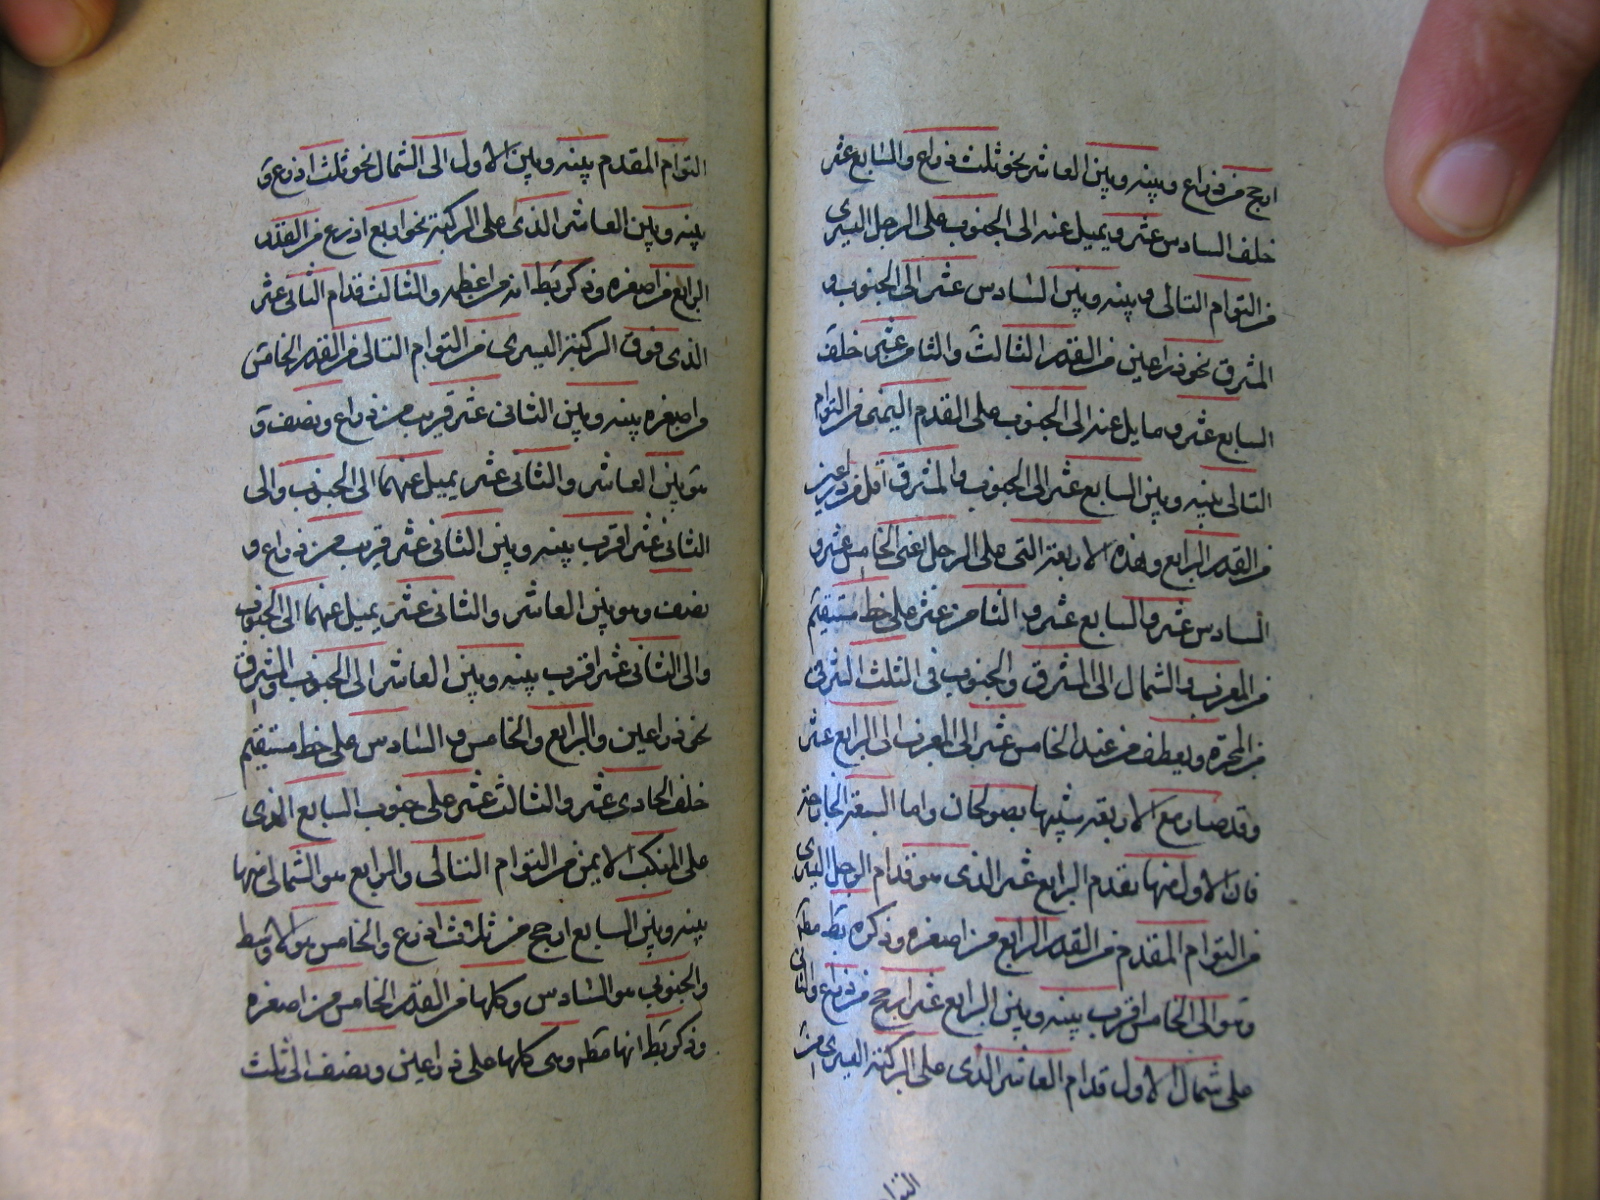 ارجح من ذراع وبينه وبين العاشر نحو ثلث ذراع والسابع عشر
خلف السادس عشر ويميل عنه الى الجنوب على الرجل اليسرى
من التوام التالى وبينه وبين السادس عشر الى الجنوب و
المشرق نحو ذراعين من القدر الثالث والثامن عشر خلف
السابع عشر ومايل عنه الى الجنوب على القدم اليمنى من التوام
التالى بينه وبين السابع عشر الى الجنوب والمشرق اقل من ذراعين
من القدر الرابع وهذه الاربعة التى على الرجل اعنى الخامس عشر و
السادس عشر والسابع عشر والثامن عشر على خط مستقيم
من المغرب والشمال الى المشرق والجنوب فى الثلث الشرقى
من المجرة ويعطف من عند الخامس عشر الى المغرب الى الرابع عشر
وقد صار مع الاربعة شبيها بصولجان واما السبعة الخارجة
فان الاول منها يقدم الرابع عشر الذى هو قدام الرجل اليسرى
من التوام المقدم من القدر الرابع من اصغره وذكره بط مط
وهو الى الخامس اقرب بينه وبين الرابع عشر ارجح من ذراع والثانى
على شمال الاول قدام العاشر الذى على الركبة اليسرى من
التوام
التوام المقدم بينه وبين الاول الى الشمال نحو ثلث اذرع و
بينه وبين العاشر الذى على الركبة نحو اربع اذرع من القدر
الرابع من اصغره وذكر بط انه من اعظمه والثالث قدام الثانى عشر
الذى فوق الركبة اليسرى من التوام التالى من القدر الخامس
من اصغره بينه وبين الثانى عشر قريب من ذراع ونصف و
هو بين العاشر والثانى عشر يميل عنهما الى الجنوب والى
الثانى عشر اقرب بينه وبين الثانى عشر قريب من ذراع و
نصف وهو بين العاشر والثانى عشر يميل عنهما الى الجنوب
والى الثانى عشر اقرب بينه وبين العاشر الى الجنوب والمشرق
نحو ذراعين والرابع والخامس والسادس على خط مستقيم
خلف الحادى عشر والثالث عشر على جنوب السابع الذى
على المنكب الايمن من التوام التالى والرابع هو الشمالى منها
بينه وبين السابع ارجح من ثلاث اذرع والخامس هو الاوسط
والجنوبى هو السادس وكلها من القدر الخامس من اصغره
وذكر بط انها مط وهى كلها على ذراعين ونصف الى ثلث